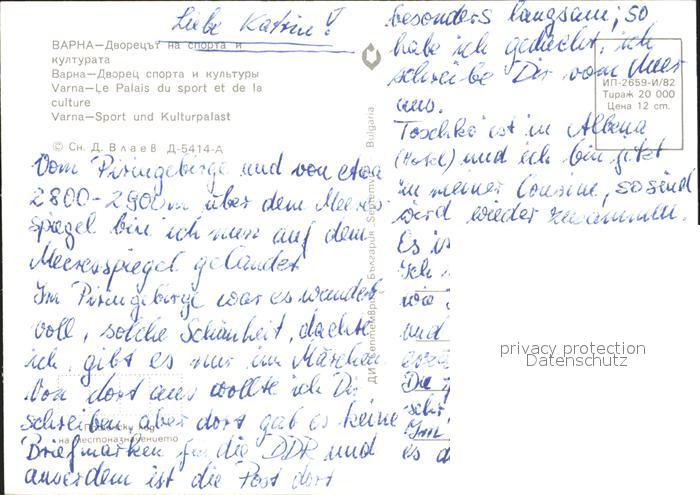 Liebe Katrin!
ВАРНА—Дворецът на спорта и
културата
Варна—Дворец спорта и культуры
Varna—Le Palais du sport et de la
culture
Varna—Sport und Kulturpalast
© Сн. Д. Влаев Д-5414-А
Vom Piringebirge und von etwa
2800-2900m über dem Meeres
spiegel bin ich nun auf dem
Meeresspiegel gelandet
Im Piringebirge war es wunder
voll, solche Schönheit, dachte
ich, gibt es nur im Märchen.
Von dort aus wollte ich Dir
schreiben aber dort gab es keine
Briefmarken für die DDR und
ausserdem ist die Post dort
на местоназначението
Септември България Septemvri Bulgaria
besonders langsam; so
habe ich gedacht, ich
schreibe Dir vom Meer
aus.
Toschko ist in Albena
(Hotel) und ich bin jetzt
in meiner Cousine, so sind
wird wieder zusammen.
Es
Ich
wie
und
Die
schr
Im
es d
ИП-2659-И/82
Тираж 20 000
Цена 12 ст.
privacy protection
Datenschutz